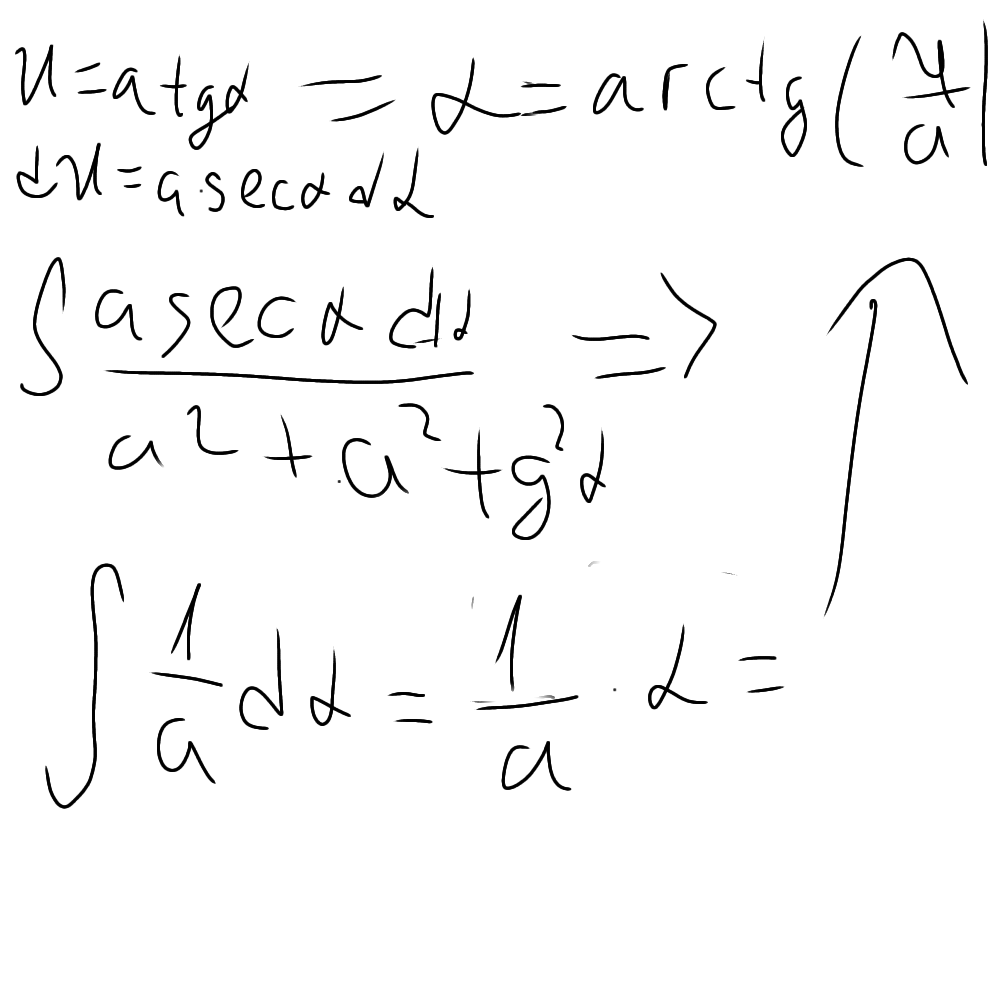 u=atgα = α=arctg(u/a)
du=a·secα dα
∫ (a secα dα)/(a²+a²tg²α) =>
∫ 1/a dα = 1/a · α =